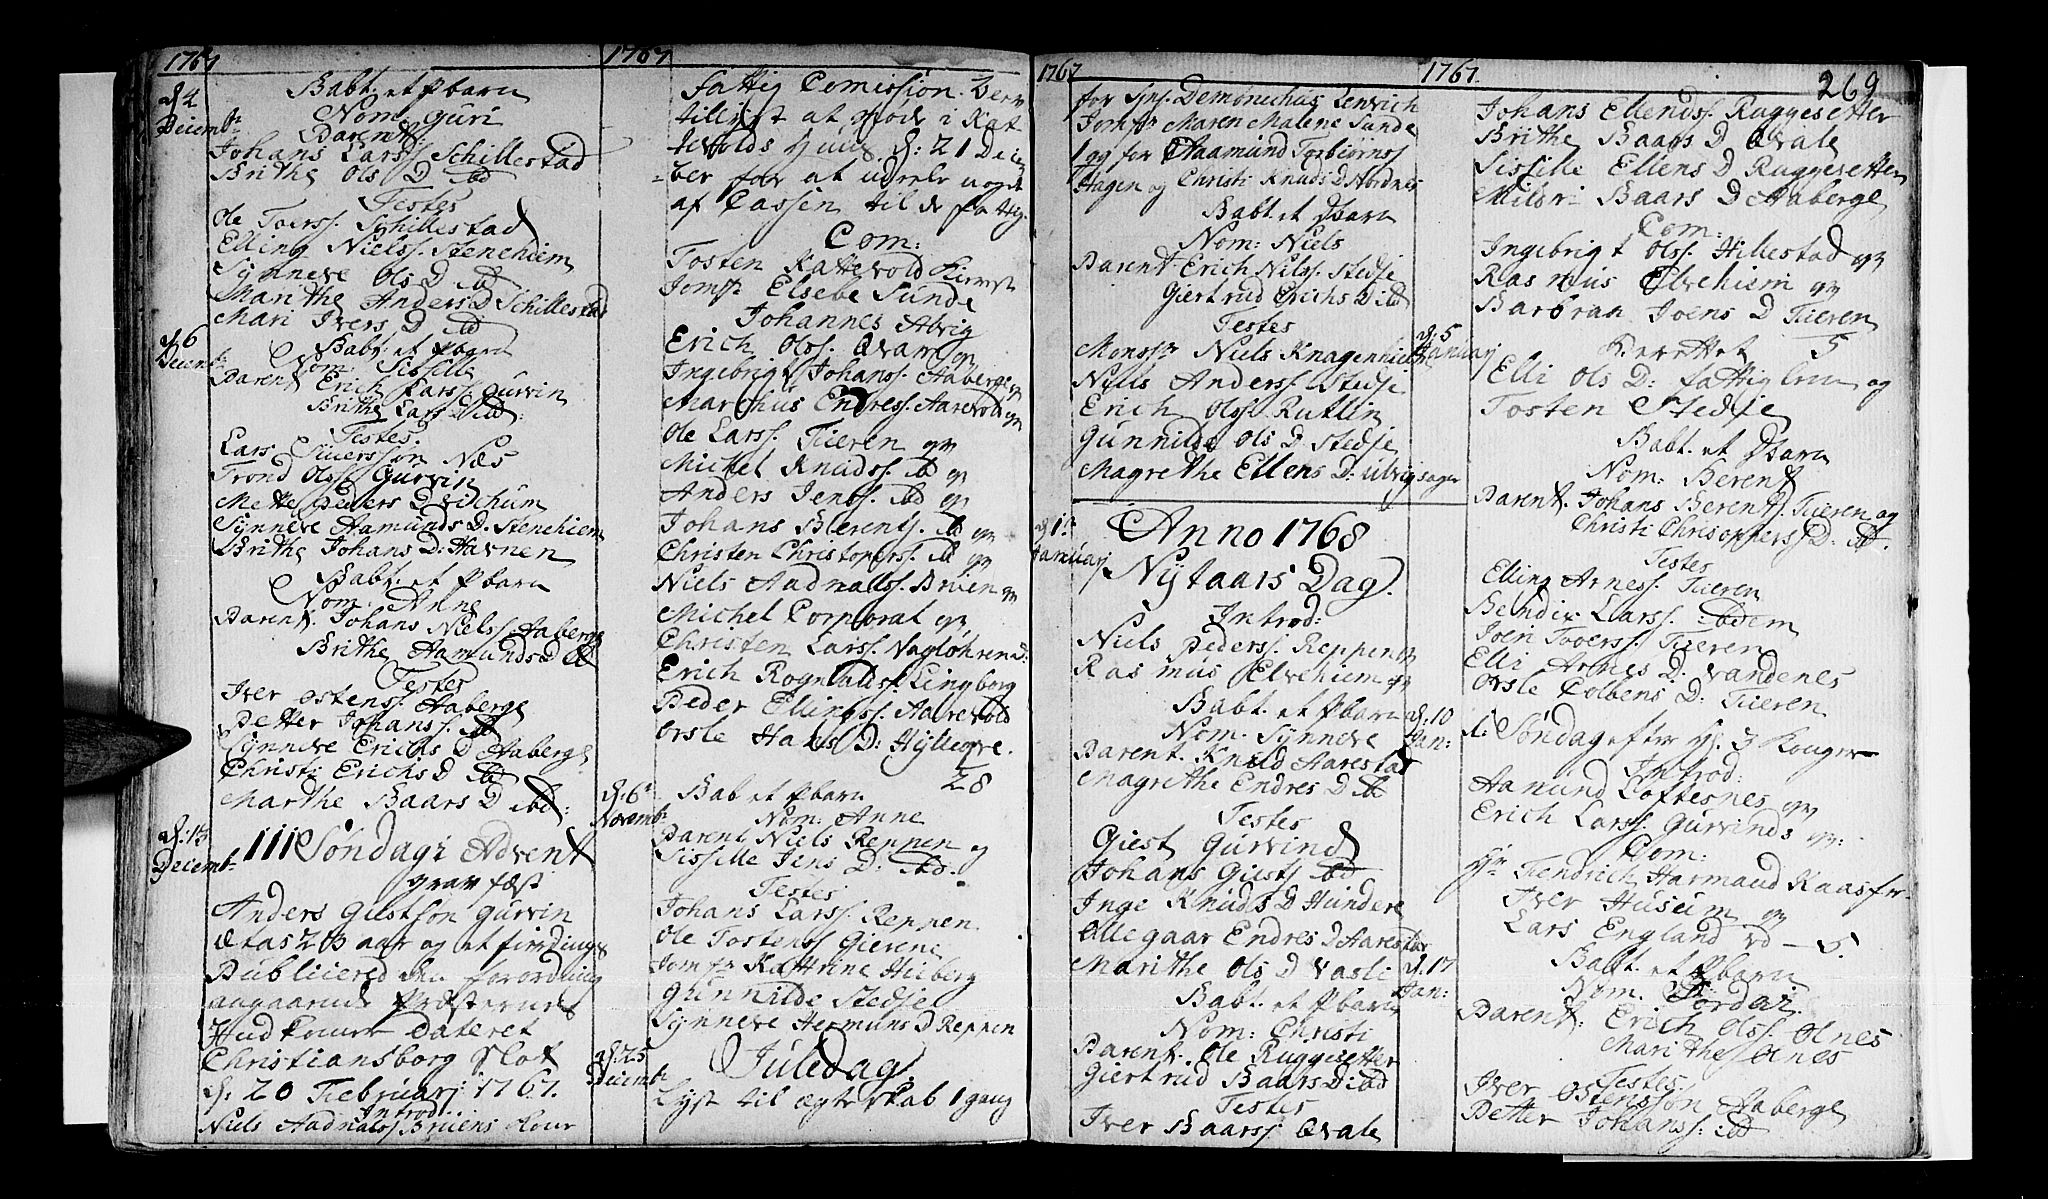 1767
1767
d. 4
Decemb:
Babt. et Pbarn
Nom. Guri
Parent
Johans Larss. Schillestad
Brithe Ols D ibd
Testes
Ole Toerss. Schillestad
Elling Nielss. Stenehiem
Synneve Ols D ibd
Marithe Anders D Schillestad
Mari Ivers D ibd
d. 6
Decemb:
Babt. et Pbarn
Nom. Sissille
Parent Erich Larss. Gurvin
Brithe Lars D ibd:
Testes.
Lars Siverssøn Næs
Trond Olss. Gurvin
Mette Peders D Vichum
Synneve Aamunds D: Stenehiem
Brithe Johans D: Havnen
Babt. et Pbarn
Nom. Anne
Parent. Johans Nielss. Aaberge
Brithe Aamunds D ibd
Testes
Iver Ostenss. Aaberge
Petter Johanss. ibd
Synneve Erichs D Aaberge
Christi Erichs D ibd
Marthe Baars D ibd:
d: 13
Decemb:
III Søndag i Advent
grav fæst
Anders Giestsøn Gurvin
ætas 20 aar og et fierding
Publicered den forordning
angaaende Præsternes
Christiansborg Slot
d: 20 Februarj 1767.
Introd:
Niels Aadnalss. Bruens Kone
Fattig Comission Berm
tillyst at møde i Kat
tevolds Huus d: 21 Dec
ber for at uddele noget
af Cassen til de fattig.
Com:
Tosten Kattevold
Jomfr Elsebe Sunde
Johannes Alvig
Erich Olss. Qvam
Ingebrigt Johanss. Aaberge
Marchus Endress. Aarevold
Ole Larss. Tueren
Michel Knudss. ibd
Anders Jenss. ibd
Johans Berents. ibd
Christen Christopherss. ibd
Niels Aadnalss. Bruen
Michel Corporal
Christen Larss. Nagløhren
Erich Rognalds. Lingborg
Peder Ellingss. Aarevold
Orsle Hans D: Hylleqre.
28
d. 6t
Novemb:
Bab et Pbarn
Nom: Anne
Parent Niels Reppen og
Sissille Jens D: ibd.
Testes
Johans Larss. Reppen.
Ole Tostenss Gierene
Jomfr Kattrine Hiiberg
Gunnilde Stedje
Synneve Hermuns D Reppen
d. 25
Decemb:
Juledag
Lyst til ægteskab 1 gang
1767
1767.
269
Jomfr Maren Malene Sunde
1 gg for Aamund Torbiørnss
Hagen og Christi Knuds D Nordnes
Babt. et Pbarn
Nom: Niels
Parent Erich Nilss. Stedje
Giertrud Erichs D ibd
Testes
Monsr Niels Knagenhielm
Niels Anderss. Stedje
Erich Olss. Rutlin
Gunnilde Ols D. Stedje
Magrethe Ellens D: Ulvigsager
d. 1t
Januarj
Anno 1768
Nytaars Dag.
Introd:
Niels Pederss. Reppen
Rasmus Elvehiem
Babt. et Pbarn
Nom. Synneve
Parent. Knud Aarestad
Magrethe Endres D ibd
Testes
Giest Gurvind
Johans Giests ibd
Inge Knuds D Hundere
Allegaar Endres D Aarestad
Marithe Ols D Vasli
Babt. et Pbarn
Nom: Christi
Parent. Ole Ruggesetter
Giertrud Baars D ibd
Testes
Iver Baarss. Qvale
Johans Ellendss. Ruggesetter
Brithe Baars D Qvale
Sissille Ellens D Ruggesetter
Mildri Baars D Aaberge
Com:
Ingebrigt Olss. Hillestad
Rasmus Elvehiem
Barbran Joens D Tueren
5
d. 5
Januarj
Elli Ols D: fattig lem og
Tosten Stedje
Babt. et Pbarn
Nom: Berent
Parent. Johans Berents. Tueren og
Christi Christophers D: ibd.
Testes
Elling Arness. Tueren
Bendix Larss. ibdem
Joen Toerss. Tueren
Elli Arnes D. Vandenes
Orsle Colbens D: Tueren
d. 10
Jan:
1: Søndag efter H. 3 Konger
Introd:
Aamund Loftesnes
Erich Larss. Gurvinds
Com:
Hr Hendrich Harmand Kaas
Iver Husum
Lars England
5.
d. 17
Jan:
Babt. et Pbarn
Nom.
Parent: Erich Olss. Olnes
Marithe Olnes
Testes
Iver Ostenssøn Aaberge
Petter Johanss: ibd